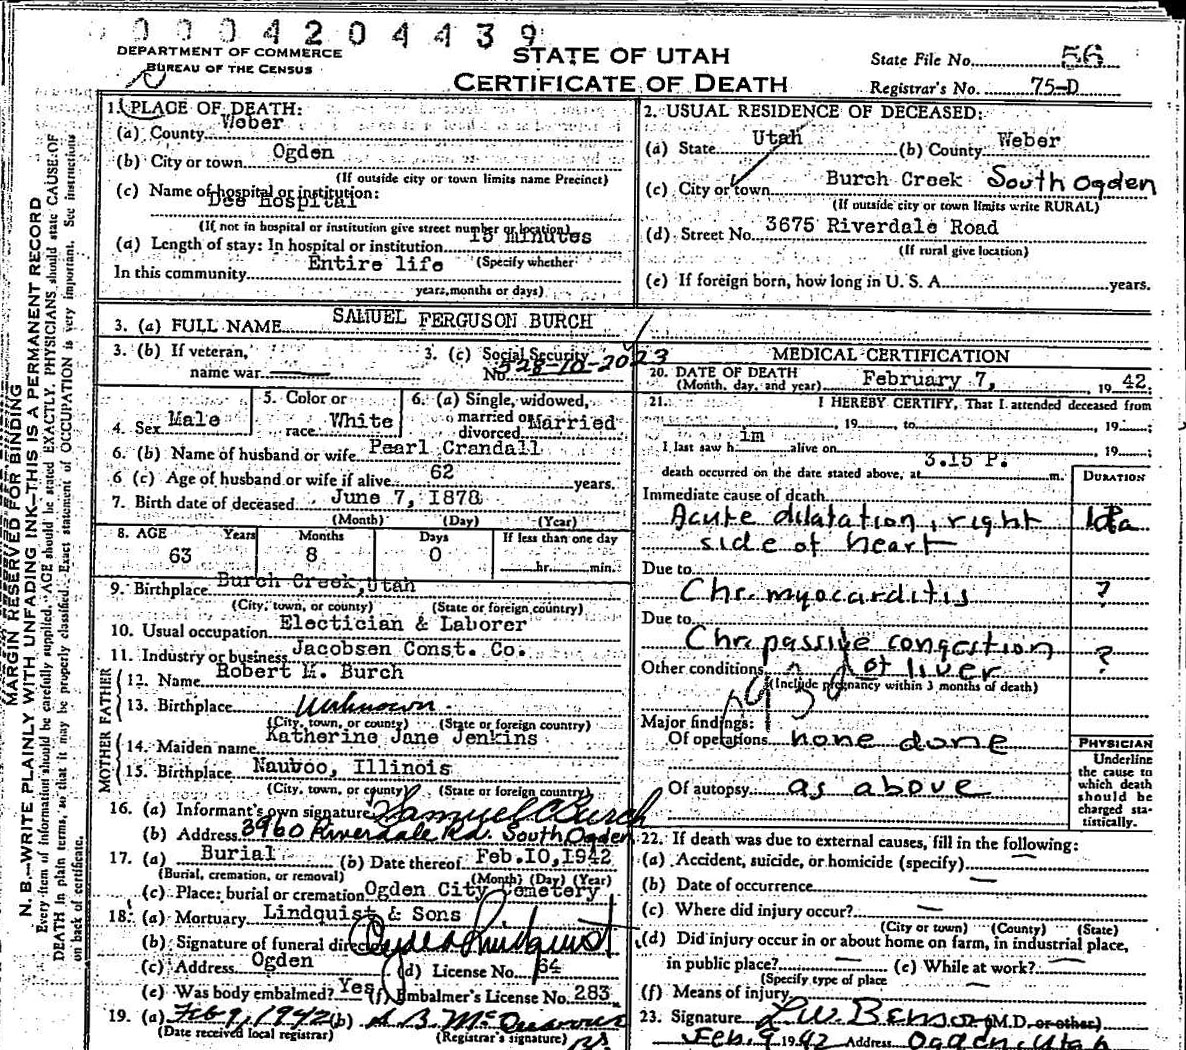 0004204439
DEPARTMENT OF COMMERCE
BUREAU OF THE CENSUS
STATE OF UTAH
CERTIFICATE OF DEATH
State File No. 56
Registrar's No. 75-D
MARGIN RESERVED FOR BINDING
N. B.—WRITE PLAINLY WITH UNFADING INK—THIS IS A PERMANENT RECORD
Every item of information should be carefully supplied. AGE should be stated EXACTLY. PHYSICIANS should state CAUSE OF
DEATH in plain terms, so that it may be properly classified. Exact statement of OCCUPATION is very important. See instructions
on back of certificate.
1. PLACE OF DEATH:
(a) County Weber
(b) City or town Ogden
(If outside city or town limits name Precinct)
(c) Name of hospital or institution:
Dee Hospital
(If not in hospital or institution give street number or location)
(d) Length of stay: In hospital or institution 15 minutes
(Specify whether
In this community Entire life
years, months or days)
2. USUAL RESIDENCE OF DECEASED:
(a) State Utah (b) County Weber
(c) City or town Burch Creek South Ogden
(If outside city or town limits write RURAL)
(d) Street No. 3675 Riverdale Road
(If rural give location)
(e) If foreign born, how long in U. S. A. years.
3. (a) FULL NAME SAMUEL FERGUSON BURCH
3. (b) If veteran,
name war
3. (c) Social Security
No. 528-10-2023
4. Sex Male
5. Color or
race White
6. (a) Single, widowed,
married or
divorced Married
6. (b) Name of husband or wife Pearl Crandall
6 (c) Age of husband or wife if alive 62 years.
7. Birth date of deceased June 7, 1878
(Month) (Day) (Year)
8. AGE Years Months Days If less than one day
63 8 0 hr. min.
9. Birthplace Burch Creek, Utah
(City, town, or county) (State or foreign country)
10. Usual occupation Electician & Laborer
11. Industry or business Jacobsen Const. Co.
FATHER
12. Name Robert M. Burch
13. Birthplace Unknown
(City, town, or county) (State or foreign country)
MOTHER
14. Maiden name Katherine Jane Jenkins
15. Birthplace Nauvoo, Illinois
(City, town, or county) (State or foreign country)
16. (a) Informant's own signature Samuel C Burch
(b) Address 3960 Riverdale Rd. South Ogden
17. (a) Burial (b) Date thereof Feb. 10, 1942
(Burial, cremation, or removal) (Month) (Day) (Year)
(c) Place: burial or cremation Ogden City Cemetery
18. (a) Mortuary Lindquist & Sons
(b) Signature of funeral director Lindquist
(c) Address Ogden (d) License No. 64
(e) Was body embalmed? Yes (f) Embalmer's License No. 283
19. (a) Feb 9, 1942 (b)
(Date received local registrar) (Registrar's signature)
MEDICAL CERTIFICATION
20. DATE OF DEATH
(Month, day, and year) February 7, 19 42.
21. I HEREBY CERTIFY, That I attended deceased from
, 19 , to , 19 ;
I last saw him alive on , 19 ;
death occurred on the date stated above, at 3.15 P. m.
DURATION
Immediate cause of death
Acute dilatation, right
side of heart
Due to
Chr. myocarditis ?
Due to
Chr. passive congestion ?
of liver
Other conditions
(Include pregnancy within 3 months of death)
Major findings:
Of operations none done
Of autopsy as above
PHYSICIAN
Underline
the cause to
which death
should be
charged sta-
tistically.
22. If death was due to external causes, fill in the following:
(a) Accident, suicide, or homicide (specify) —
(b) Date of occurrence —
(c) Where did injury occur? —
(City or town) (County) (State)
(d) Did injury occur in or about home on farm, in industrial place,
in public place? — (e) While at work? —
(Specify type of place
(f) Means of injury —
23. Signature L.W. Benson (M.D. or other)
Feb. 9 1942 Address Ogden, Utah